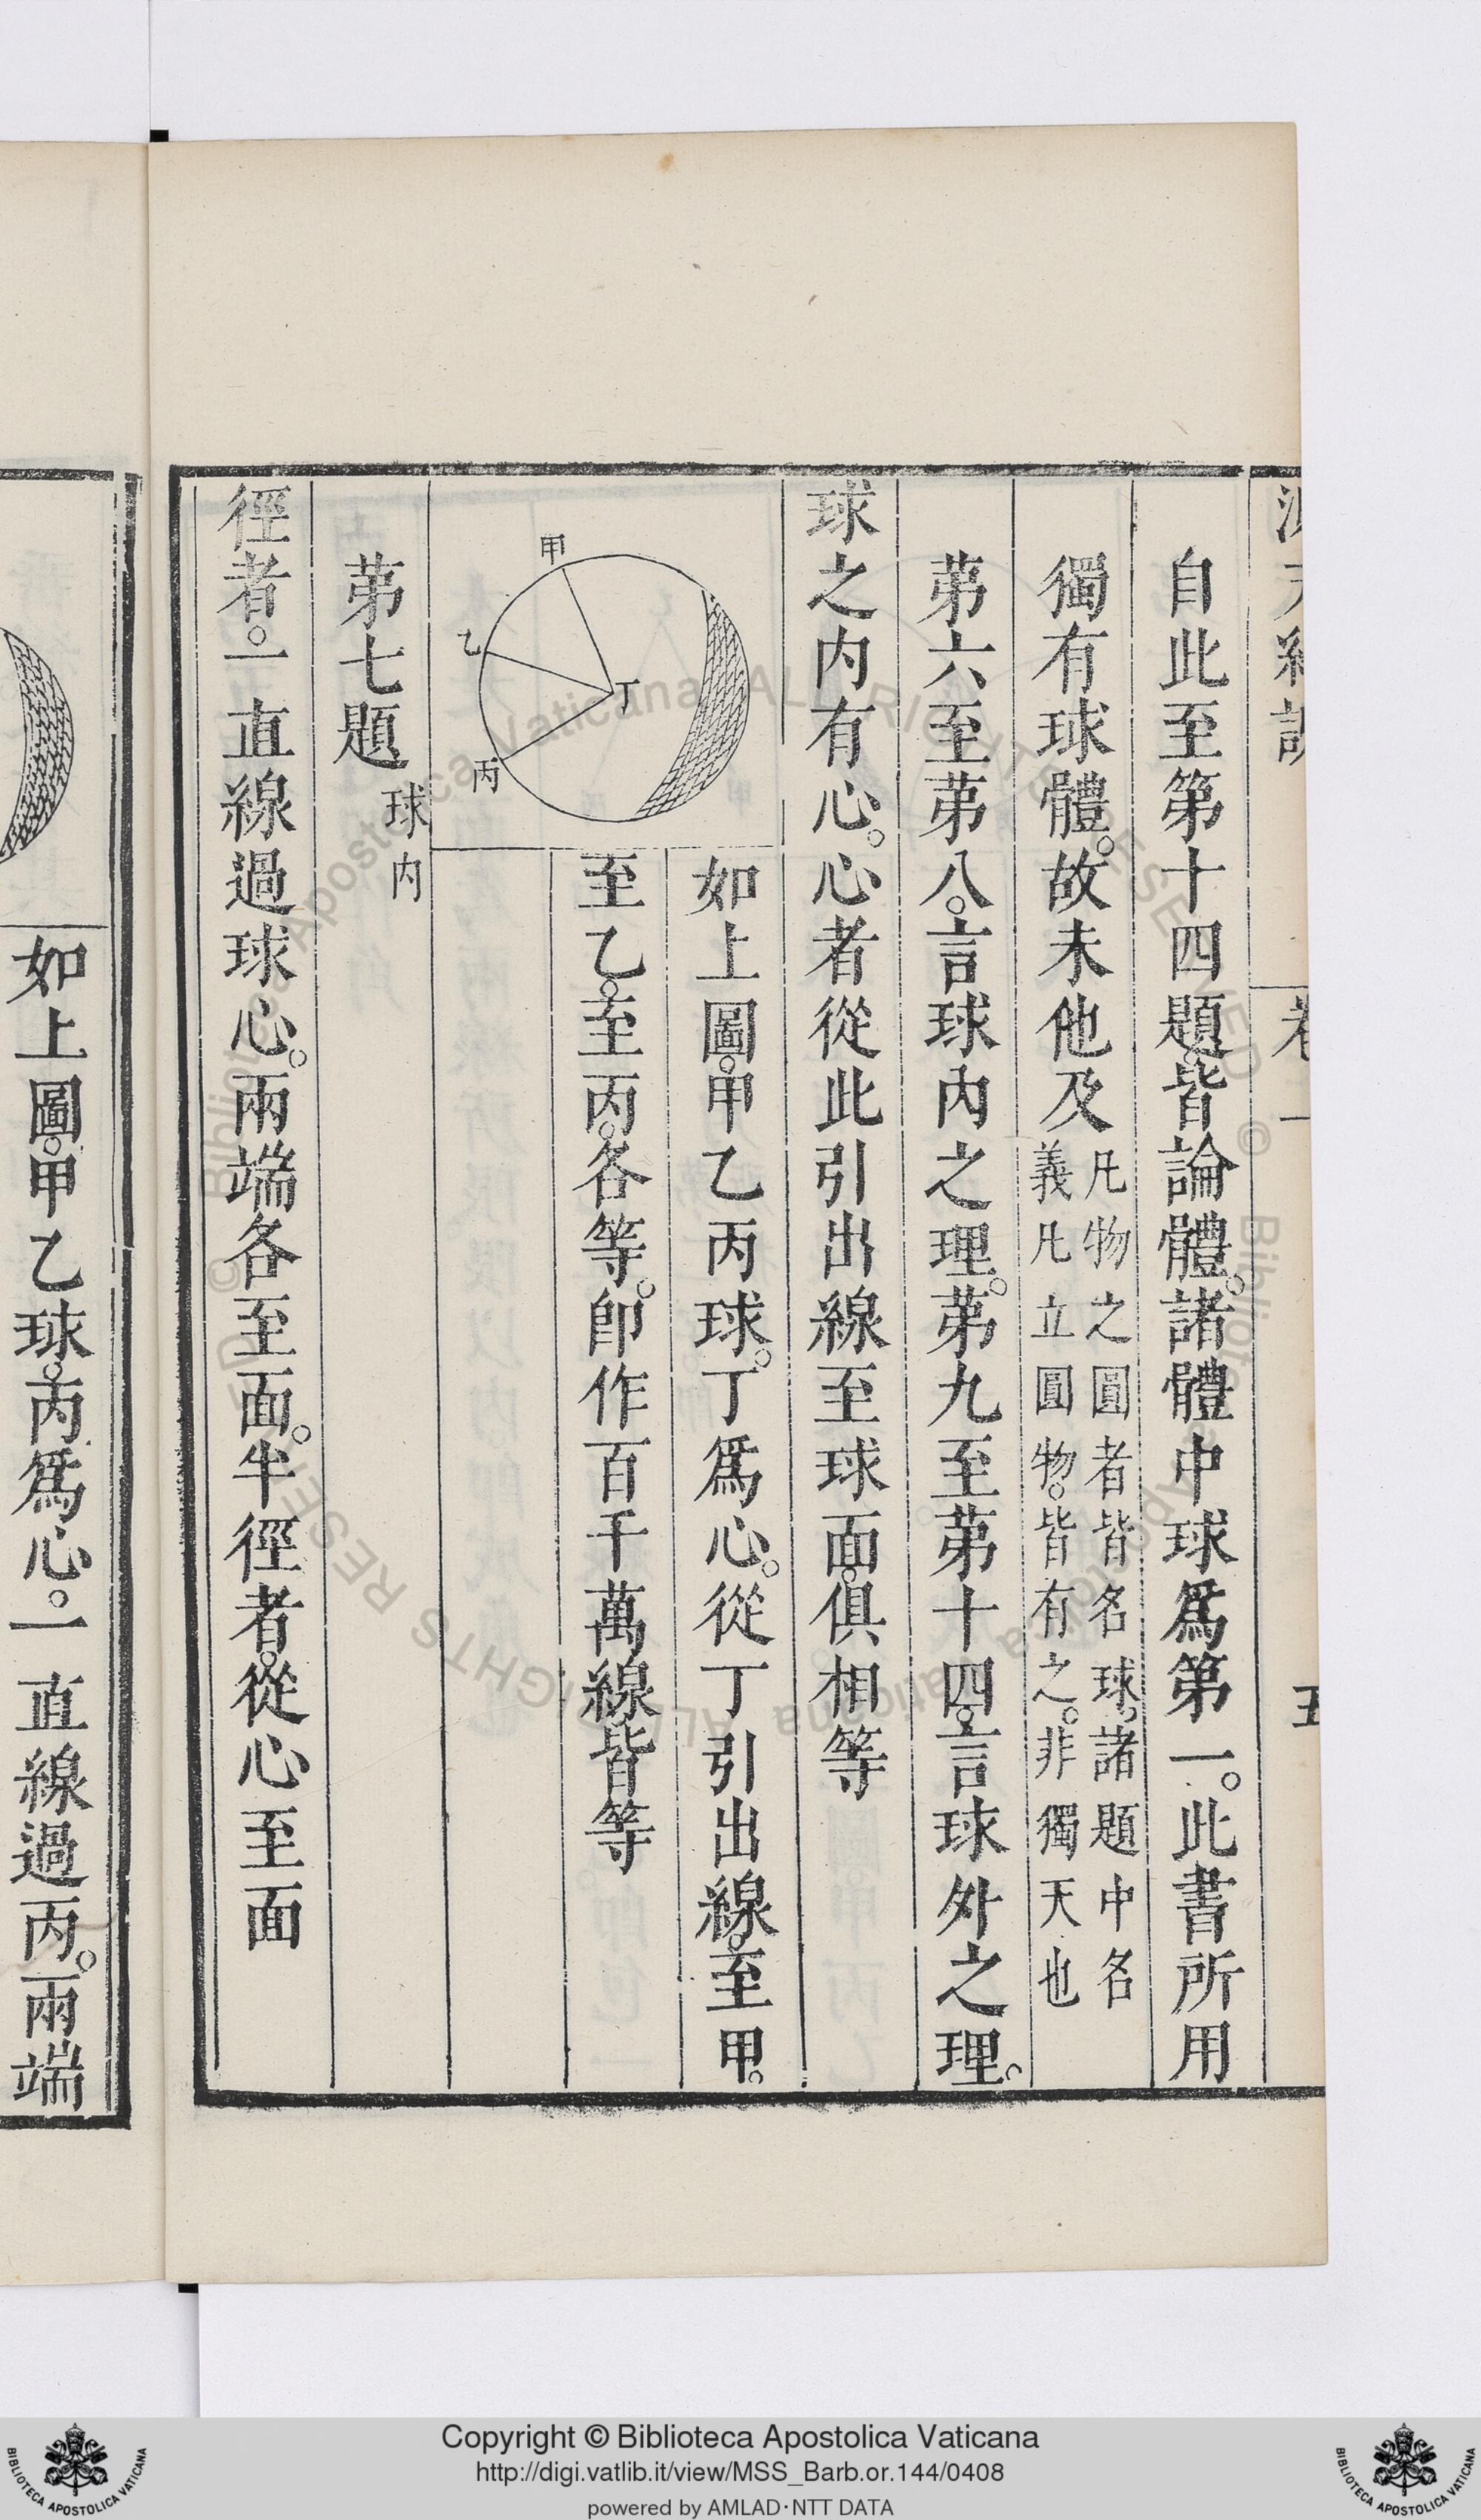 卷一
五
自此至第十四題。皆論體。諸體中球爲第一。此書所用
獨有球體。故未他及凡物之圓者皆名球。諸題中名
義凡立圓物。皆有之。非獨天也
苐六至苐八。言球內之理。苐九至苐十四。言球外之理。
球之內有心。心者從此引出線至球面。俱相等
甲
乙
丙
丁
如上圖。甲乙丙球。丁爲心。從丁引出線。至甲。
至乙。至丙。各等。卽作百千萬線。皆等
苐七題球內
徑者。一直線過球心。兩端各至面。半徑者。從心至面
如上圖。甲乙球。丙爲心。一直線過丙。兩端
Copyright © Biblioteca Apostolica Vaticana
http://digi.vatlib.it/view/MSS_Barb.or.144/0408
powered by AMLAD·NTT DATA
BIBLIOTECA APOSTOLICA VATICANA
BIBLIOTECA APOSTOLICA VATICANA